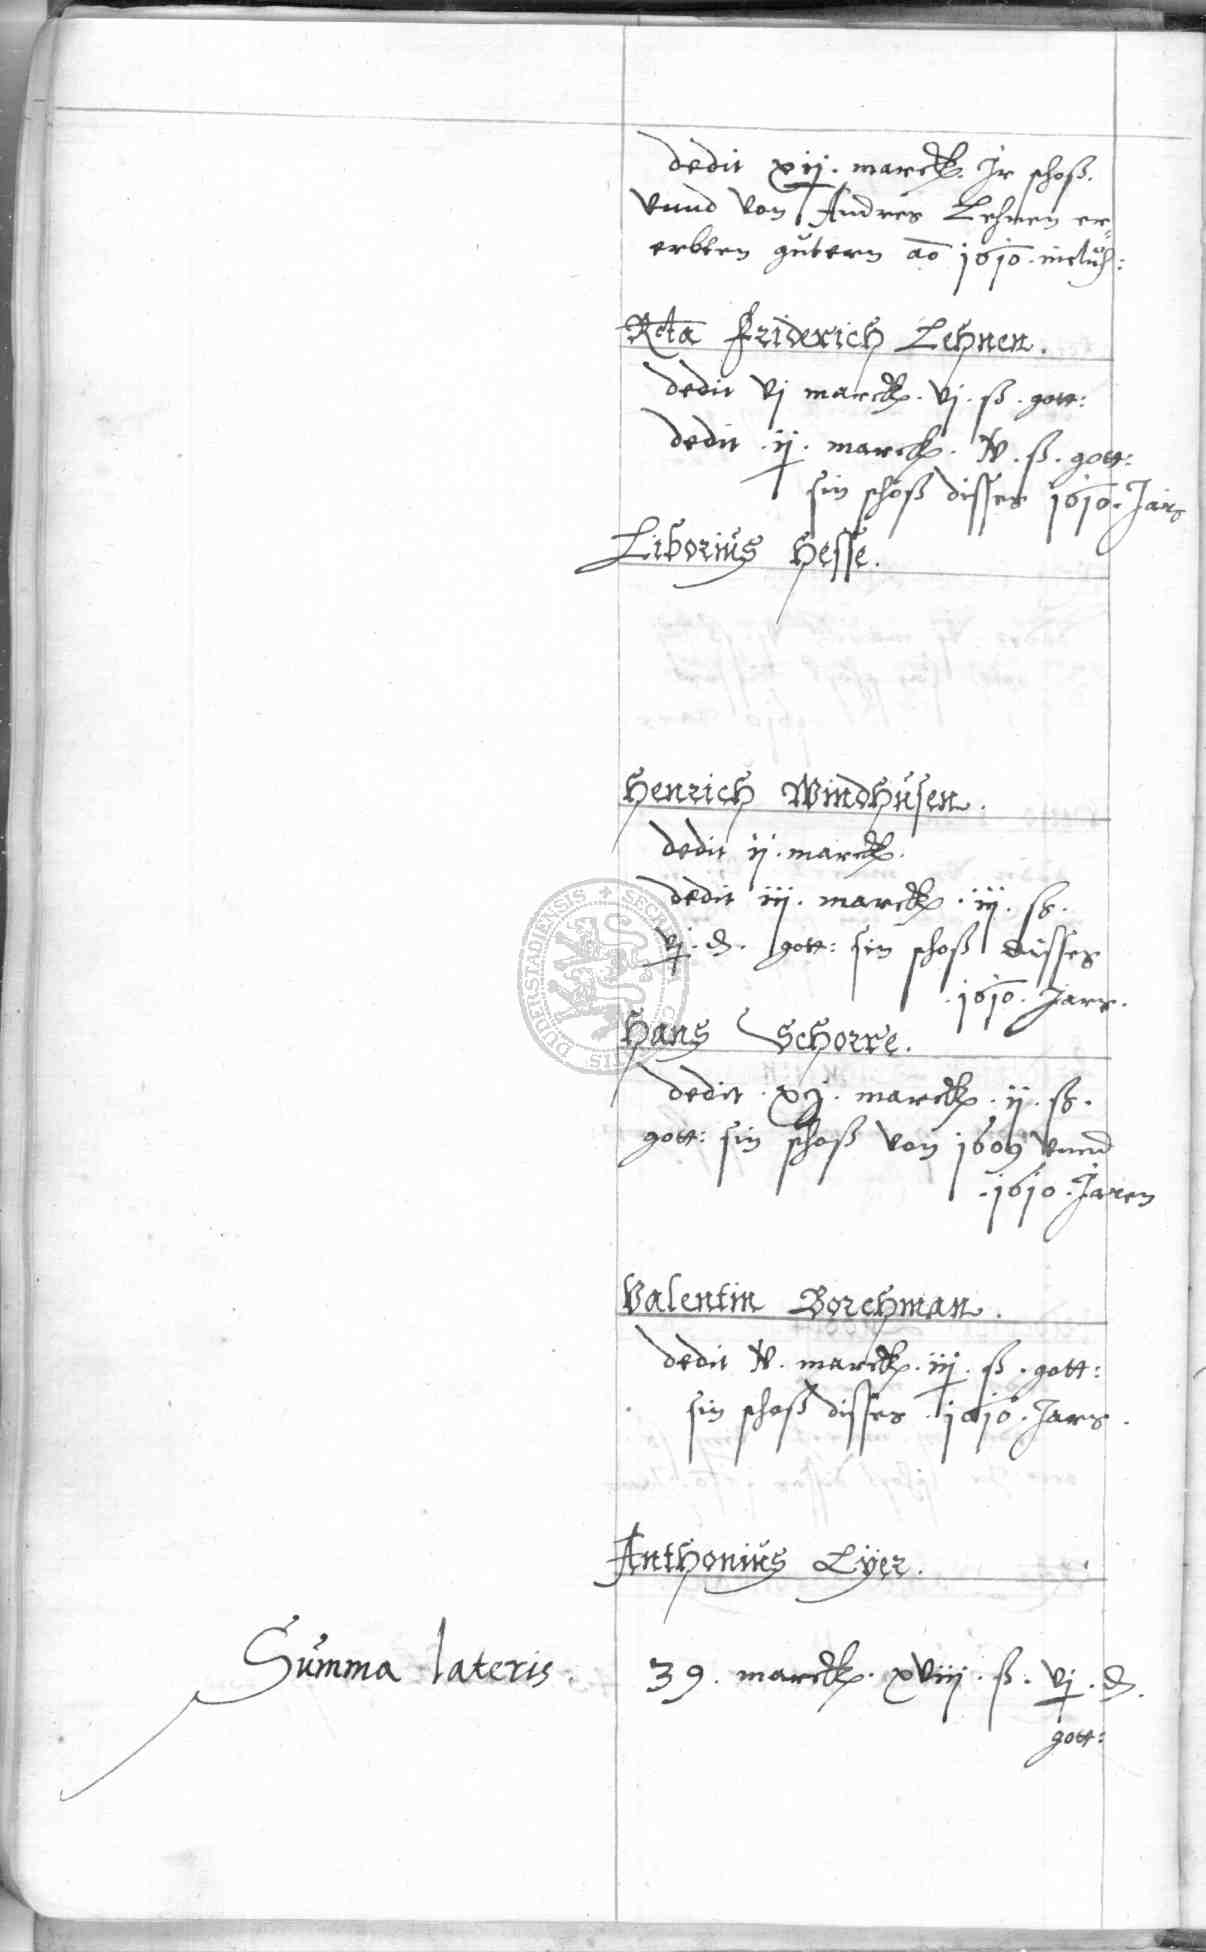 dedit xij. marck. Jr schoß.
vnnd von Andres Lehnen er-
erbten gütern ao 1610. inclus:
Rcta Friderich Lehnen.
dedit vj marck. vj. ß. gott:
dedit .ij. marck. iv. ß. gott:
sin schoß disses 1610. Jars
Liborius Hesse.
Henrich Windhusen.
dedit ij. marck.
dedit iij. marck. iij. ß.
vj. d. gott: sin schoß disses
.1610. Jars.
SECRET
DUDERSTADIENSIS
Hans Schorre.
dedit . xj. marck. ij. ß.
gott: sin schoß von 1609 vnnd
.1610. Jaren
Valentin Borchman.
dedit iv. marck. iij. ß. gott:
sin schoß disses .1610. Jars.
Anthonius Lÿer.
Summa lateris. 39. marck. xviij. ß. vj. d.
gott: